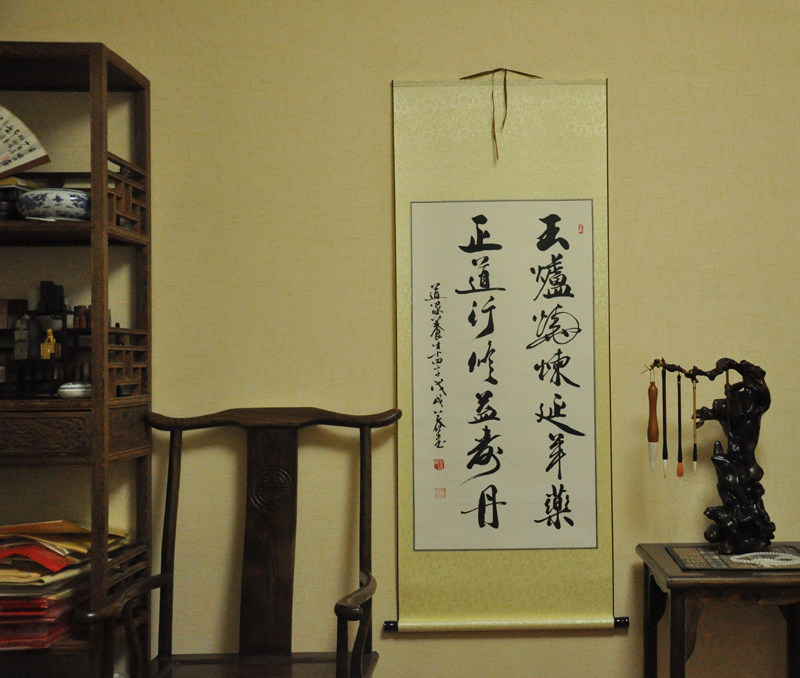 玉爐燒煉延年藥
正道行修益壽丹
道家養生十四字戊戌